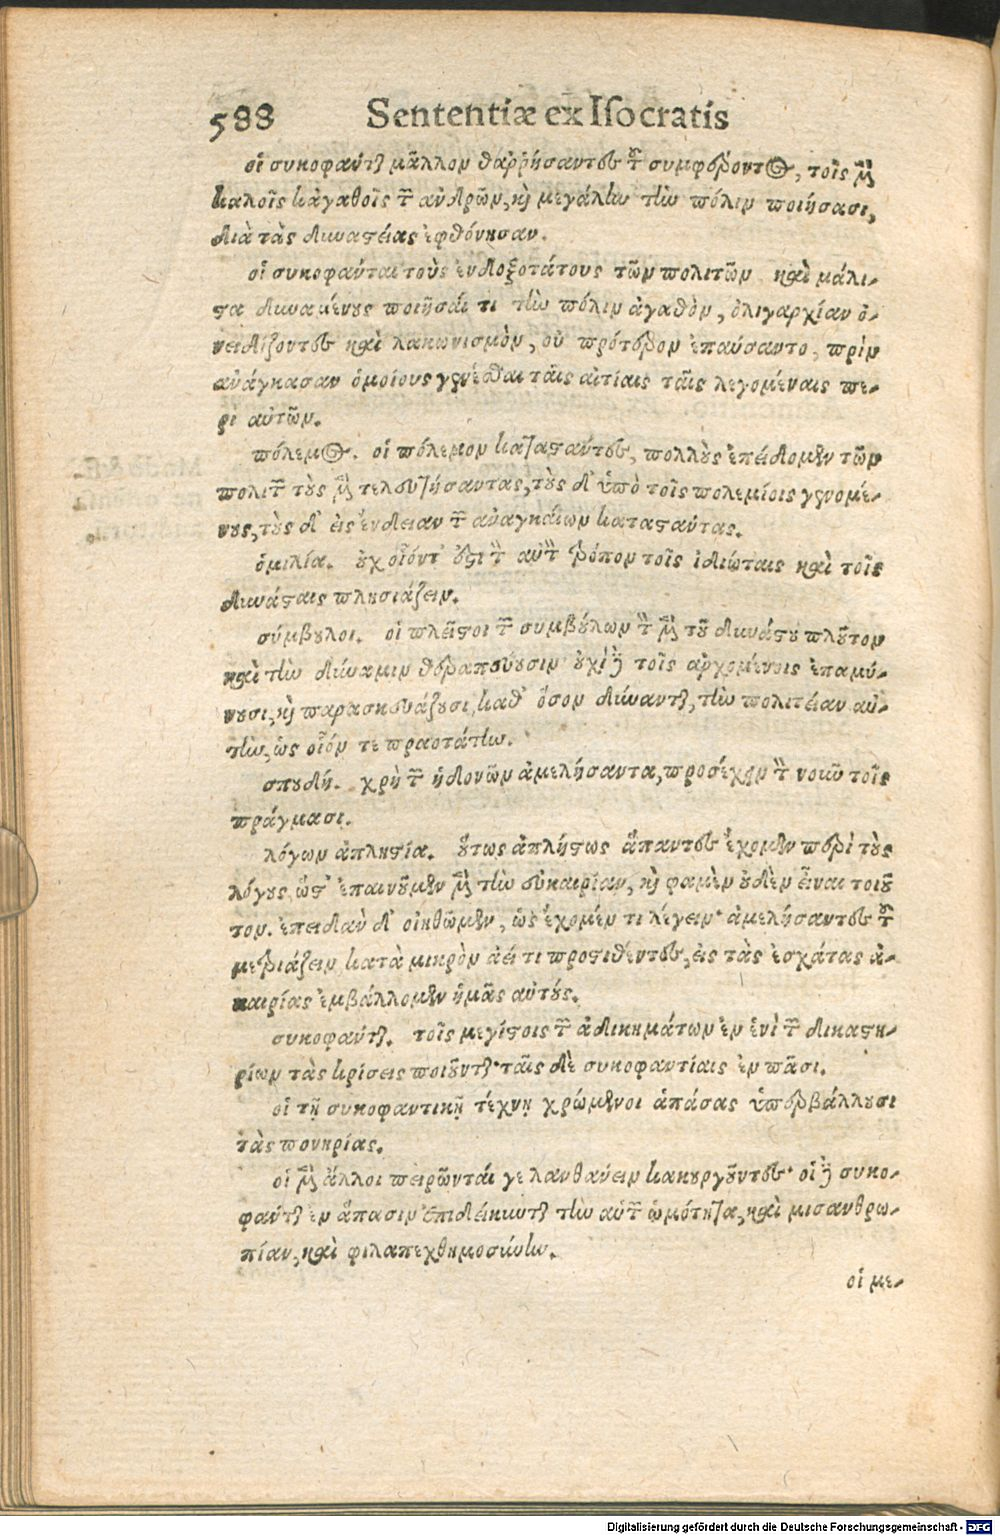 588 Sententiæ ex Iſocratis
οἱ συκοφανταὶ μᾶλλον θαῤῥήσαντες τοῦ συμφέροντος, τοῖς μὲν
καλοῖς κἀγαθοῖς τῶν ἀνδρῶν, καὶ μεγάλην τὴν πόλιν ποιήσασι,
διὰ τὰς δυναστείας ἐφθόνησαν.
οἱ συκοφάνται τοὺς ἐνδοξοτάτους τῶν πολιτῶν καὶ μάλι-
στα δυναμένους ποιῆσαί τι τὴν πόλιν ἀγαθὸν, ὀλιγαρχίαν ὀ-
νειδίζοντες καὶ λακωνισμὸν, οὐ πρότερον ἐπαύσαντο, πρὶν
ἀνάγκασαν ὁμοίους γενέσθαι ταῖς αἰτίαις ταῖς λεγομέναις πε-
ρὶ αὐτῶν.
πόλεμος. οἱ πόλεμον καταστάντες, πολλοὺς ἐπείδομεν τῶν
πολιτῶν τοὺς μὲν τελευτήσαντας, τοὺς δ' ὑπὸ τοῖς πολεμίοις γενομέ-
νους, τοὺς δ' εἰς ἔνδειαν τῶν ἀναγκαίων καταστάντας.
ὁμιλία. οὐχ οἷόντ' ἐστι τὸν αὐτὸν τρόπον τοῖς ἰδιώταις καὶ τοῖς
δυνάσταις πλησιάζειν.
σύμβουλοι. οἱ πλεῖστοι τῶν συμβούλων τὸν μὲν τοῦ δυνάστου πλοῦτον
καὶ τὴν δύναμιν θεραπεύουσιν οὐχὶ δὲ τοῖς ἀρχομένοις ἐπαμύ-
νουσι, καὶ παρασκευάζουσι, καθ' ὅσον δύνανται, τὴν πολιτείαν αὐ-
τὴν, ὡς οἷόν τε πραοτάτην.
σπουδή. χρὴ τῶν ἡδονῶν ἀμελήσαντα, προσέχειν τὸν νοῦν τοῖς
πράγμασι.
λόγων ἀπληστία. οὕτως ἀπλήστως ἅπαντες ἔχομεν περὶ τοὺς
λόγους, ὥστ' ἐπαινοῦμεν μὲν τὴν εὐκαιρίαν, καὶ φαμὲν οὐδὲν εἶναι τοιοῦ
τον. ἐπειδὰν δ' οἰηθῶμεν, ὡς ἔχομέν τι λέγειν· ἀμελήσαντες τοῦ
μετριάζειν, κατὰ μικρὸν ἀεί τι προστιθέντες, εἰς τὰς ἐσχάτας ἀ-
καιρίας ἐμβάλλομεν ἡμᾶς αὐτούς.
συκοφάνται. τοῖς μεγίστοις τῶν ἀδικημάτων ἐν ἑνὶ τῶν δικαστη-
ρίων τὰς κρίσεις ποιοῦνται· ταῖς δὲ συκοφαντίαις ἐν πᾶσι.
οἱ τῇ συκοφαντικῇ τέχνῃ χρώμενοι ἁπάσας ὑπερβάλλουσι
τὰς πονηρίας.
οἱ μὲν ἄλλοι πειρῶνταί γε λανθάνειν κακουργοῦντες· οἱ δὲ συκο-
φάνται ἐν ἅπασιν ἐπιδείκνυνται τὴν αὑτῶν ὠμότητα, καὶ μισανθρω-
πίαν, καὶ φιλαπεχθημοσύνην.
οἱ με-
Digitalisierung gefördert durch die Deutsche Forschungsgemeinschaft - DFG